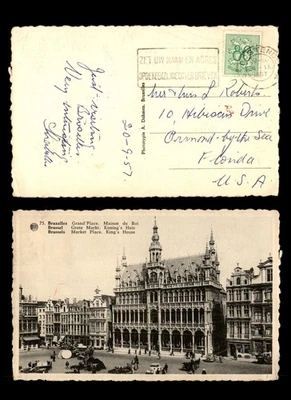 ZET UW NAAM EN ADRES
OP DE KEERZIJDE VAN UW BRIEVEN
Just visiting
Brussels.
Very interesting
20-9-57.
Photogravure A. Dohmen, Bruxelles
Mr & Mrs L. Roberts
10, Hibiscus Drive
Ormond-by-the Sea
Florida
U.S.A
73. Bruxelles Grand'Place. Maison du Roi
Brussel Grote Markt. Koning's Huis
Brussels Market Place. King's House